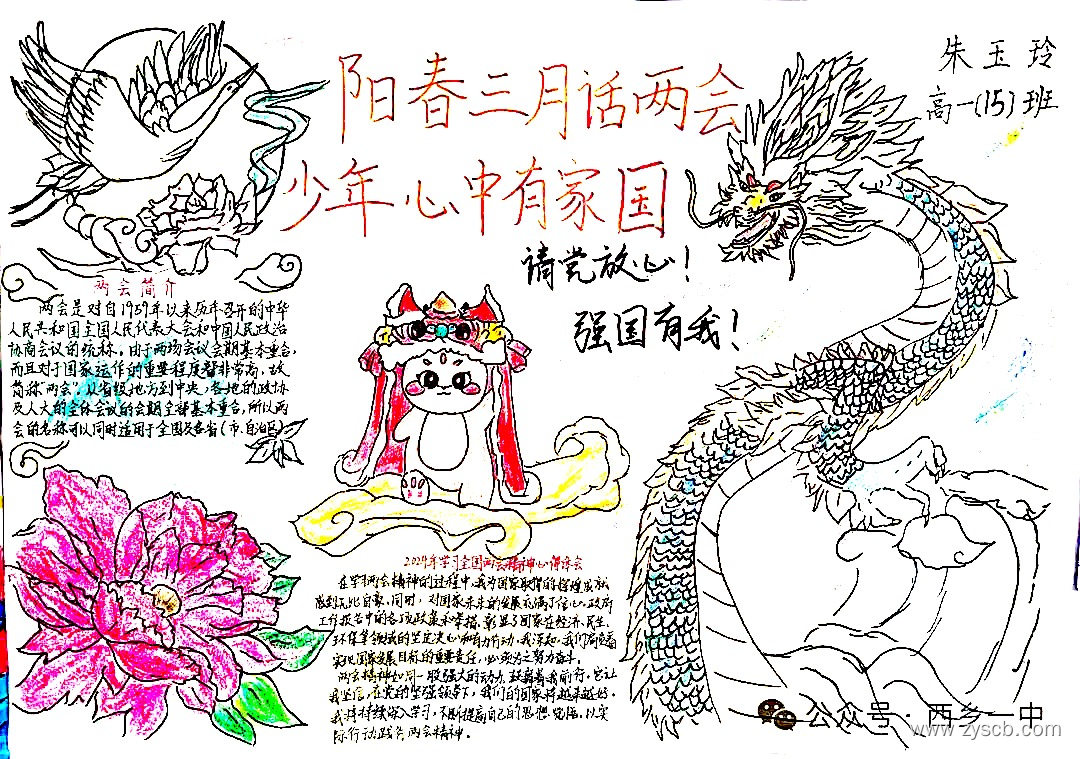 阳春三月话两会
少年心中有家国
请党放心!
强国有我!
朱玉玲
高一(15)班
两会简介
两会是对自1959年以来历年召开的中华
人民共和国全国人民代表大会和中国人民政治
协商会议的统称。由于两场会议会期基本重合,
而且对于国家运作的重要程度都非常高,故
简称两会,从省级地方到中央,各地的政协
及人大的全体会议的会期全部基本重合,所以两
会的名称可以同时适用于全国及各省(市、自治区)
2024年学习全国两会精神心得体会
在学习两会精神的过程中,我为国家取得的辉煌成就
感到无比自豪,同时,对国家未来的发展充满了信心。政府
工作报告中的各项政策和举措,彰显了国家在经济、民生、
环保等领域的坚定决心和有力行动。我深知,我们肩负着
实现国家发展目标的重要责任,必须为之努力奋斗。
两会精神如同一股强大的动力,鼓舞着我前行。它让
我坚信,在党的坚强领导下,我们的国家将越来越好。
我将持续深入学习,不断提高自己的思想觉悟,以实
际行动践行两会精神。
公众号·西乡一中
www.zyscb.com